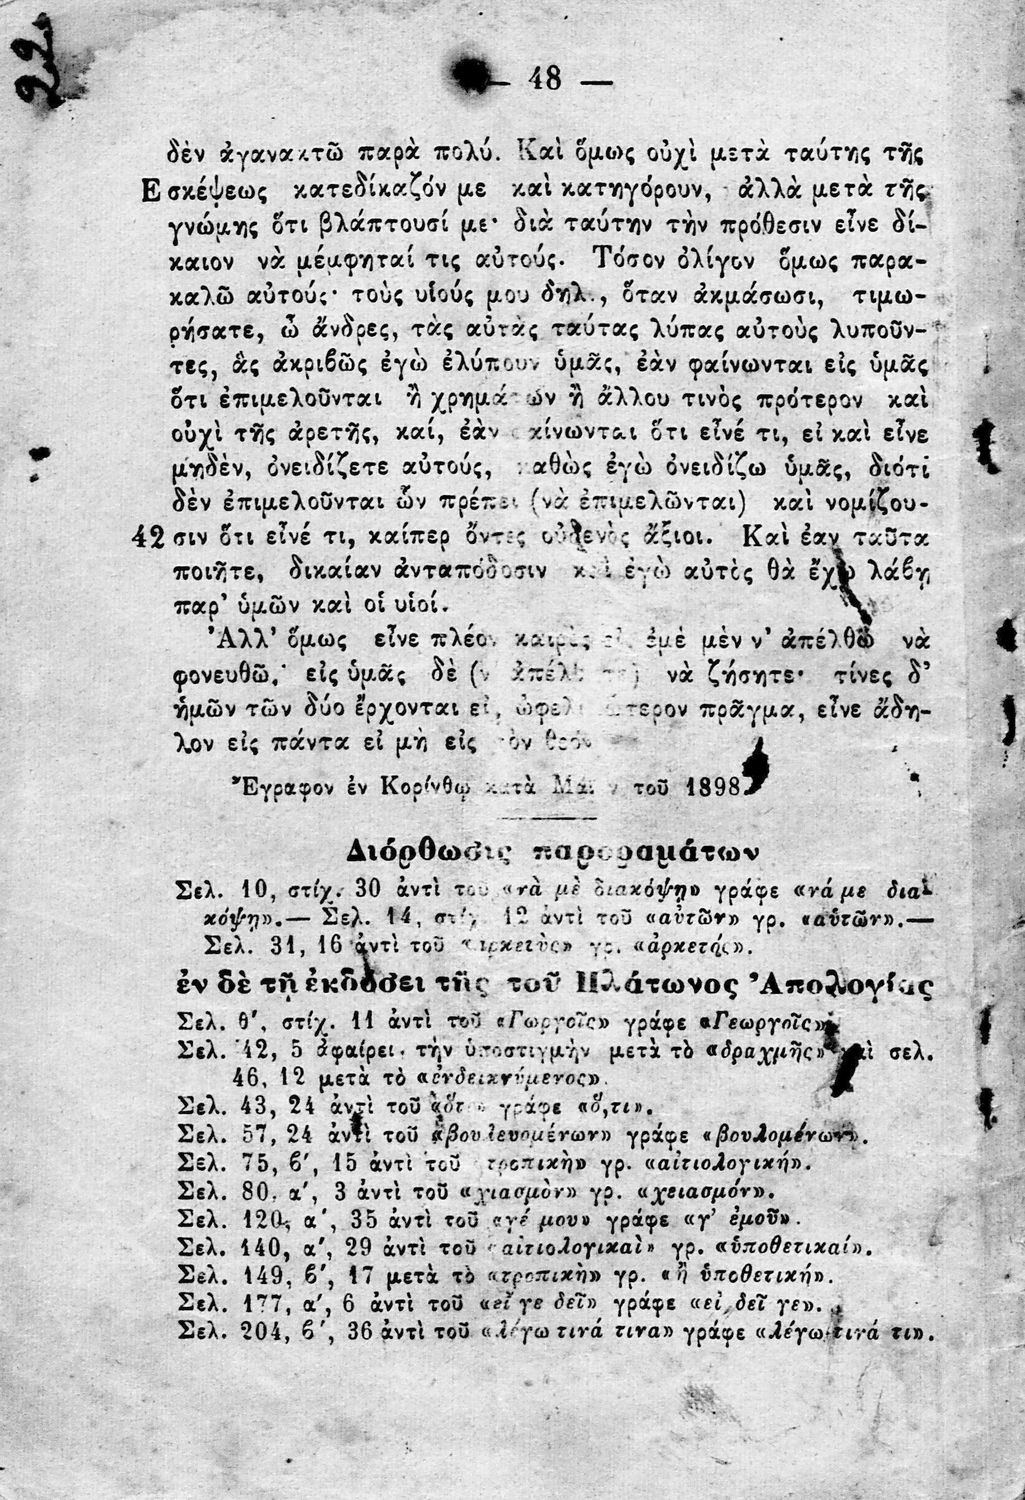 22
— 48 —
δὲν ἀγανακτῶ παρὰ πολύ. Καὶ ὅμως οὐχὶ μετὰ ταύτης τῆς
Ε σκέψεως κατεδίκαζόν με καὶ κατηγόρουν, ἀλλὰ μετὰ τῆς
γνώμης ὅτι βλάπτουσί με· διὰ ταύτην τὴν πρόθεσιν εἶνε δί-
καιον νὰ μέμφηταί τις αὐτούς. Τόσον ὀλίγον ὅμως παρα-
καλῶ αὐτούς· τοὺς υἱούς μου δηλ., ὅταν ἀκμάσωσι, τιμω-
ρήσατε, ὦ ἄνδρες, τὰς αὐτὰς ταύτας λύπας αὐτοὺς λυποῦν-
τες, ἃς ἀκριβῶς ἐγὼ ἐλύπουν ὑμᾶς, ἐὰν φαίνωνται εἰς ὑμᾶς
ὅτι ἐπιμελοῦνται ἢ χρημάτων ἢ ἄλλου τινὸς πρότερον καὶ
οὐχὶ τῆς ἀρετῆς, καί, ἐὰν κίνωνται ὅτι εἶνέ τι, εἰ καὶ εἶνε
μηδὲν, ὀνειδίζετε αὐτούς, καθὼς ἐγὼ ὀνειδίζω ὑμᾶς, διότι
δὲν ἐπιμελοῦνται ὧν πρέπει (νὰ ἐπιμελῶνται) καὶ νομίζου-
42 σιν ὅτι εἶνέ τι, καίπερ ὄντες οὐδενὸς ἄξιοι. Καὶ ἐαν ταῦτα
ποιῆτε, δικαίαν ἀνταπόδοσιν καὶ ἐγὼ αὐτὸς θὰ ἔχω λάβῃ
παρ' ὑμῶν καὶ οἱ υἱοί.
Ἀλλ' ὅμως εἶνε πλέον καιρὸς εἰς ἐμὲ μὲν ν' ἀπέλθω νὰ
φονευθῶ, εἰς ὑμᾶς δὲ (ν' ἀπέλθητε) νὰ ζήσητε· τίνες δ'
ἡμῶν τῶν δύο ἔρχονται εἰς ὠφελιμώτερον πρᾶγμα, εἶνε ἄδη-
λον εἰς πάντα εἰ μὴ εἰς τὸν θεόν
Ἔγραφον ἐν Κορίνθῳ κατὰ Μάϊον τοῦ 1898.
Διόρθωσις παροραμάτων
Σελ. 10, στίχ. 30 ἀντὶ τοῦ «νὰ μὲ διακόψῃ» γράφε «νά με δια-
κόψῃ».— Σελ. 14, στίχ. 12 ἀντὶ τοῦ «αὐτῶν» γρ. «αὑτῶν».—
Σελ. 31, 16 ἀντὶ τοῦ γρ. «ἀρκετής».
ἐν δὲ τῇ ἐκδόσει τῆς τοῦ Πλάτωνος Ἀπολογίας
Σελ. θ', στίχ. 11 ἀντὶ τοῦ «Γωργοῖς» γράφε «Γεωργοῖς»
Σελ. 42, 5 ἀφαίρει τὴν ὑποστιγμὴν μετὰ τὸ «δραχμῆς» καὶ σελ.
46, 12 μετὰ τὸ «ἐνδεικνύμενος».
Σελ. 43, 24 ἀντὶ τοῦ «ὅτι» γράφε «ὅ,τι».
Σελ. 57, 24 ἀντὶ τοῦ «βουλευομένων» γράφε «βουλομένων».
Σελ. 75, β', 15 ἀντὶ τοῦ «τροπικὴ» γρ. «αἰτιολογική».
Σελ. 80, α', 3 ἀντὶ τοῦ «χιασμὸν» γρ. «χειασμόν».
Σελ. 120, α', 35 ἀντὶ τοῦ «γέ μου» γράφε «γ' ἐμοῦ».
Σελ. 140, α', 29 ἀντὶ τοῦ «αἰτιολογικαὶ» γρ. «ὑποθετικαί».
Σελ. 149, β', 17 μετὰ τὸ «τροπικὴ» γρ. «ἢ ὑποθετική».
Σελ. 177, α', 6 ἀντὶ τοῦ «εἴ γε δεῖ» γράφε «εἰ δεῖ γε».
Σελ. 204, β', 36 ἀντὶ τοῦ «λέγω τινά τινα» γράφε «λέγω τινά τι».